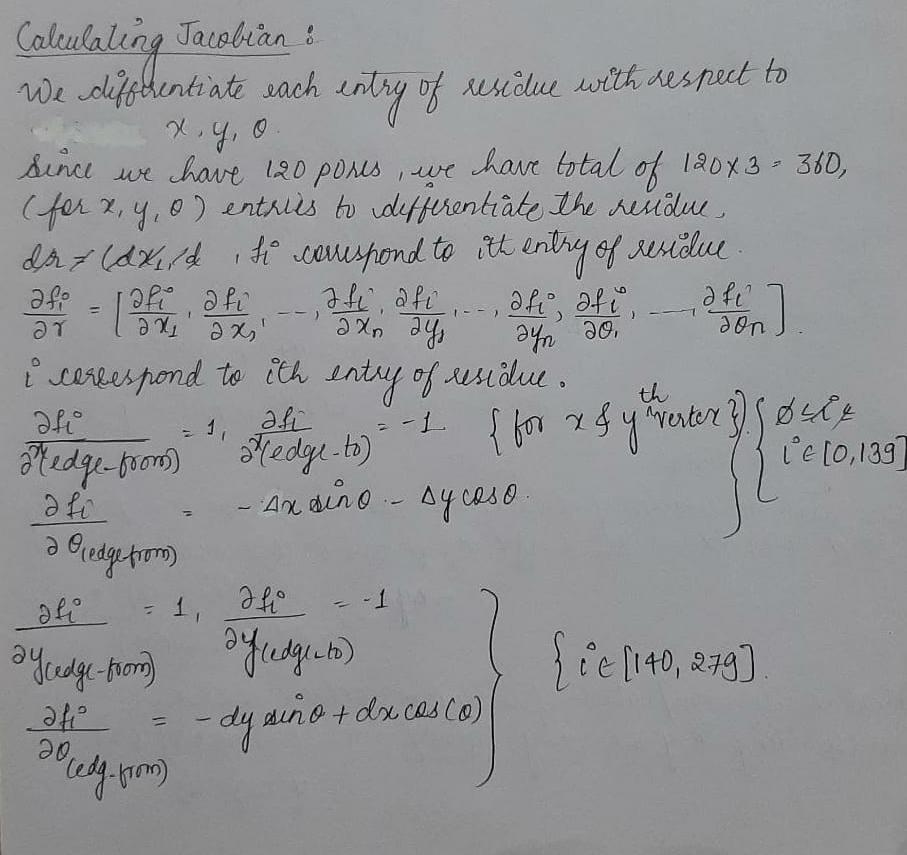 Calculating Jacobian :
We differentiate each entry of residue with respect to
x, y, θ.
Since we have 120 poses, we have total of 120x3 = 360,
(for x, y, θ) entries to differentiate the residue,
dr ≠ (dx₁/d , fi correspond to ith entry of residue.
∂fi/∂r = [∂fi/∂x₁, ∂fi/∂x₂, ---, ∂fi/∂xn, ∂fi/∂y₁, ---, ∂fi/∂yn, ∂fi/∂θ₁, ---, ∂fi/∂θn].
i correspond to ith entry of residue.
∂fi/∂x(edge-from) = 1, ∂fi/∂x(edge-to) = -1 {for x & yth vertex}} { i ∈ [0,139]
∂fi/∂θ(edge from) = - Δx sinθ - Δy cosθ.
∂fi/∂y(edge-from) = 1, ∂fi/∂y(edge-to) = -1
{ i ∈ [140, 279].
∂fi/∂θ(edg-from) = - dy sinθ + dx cos(θ)